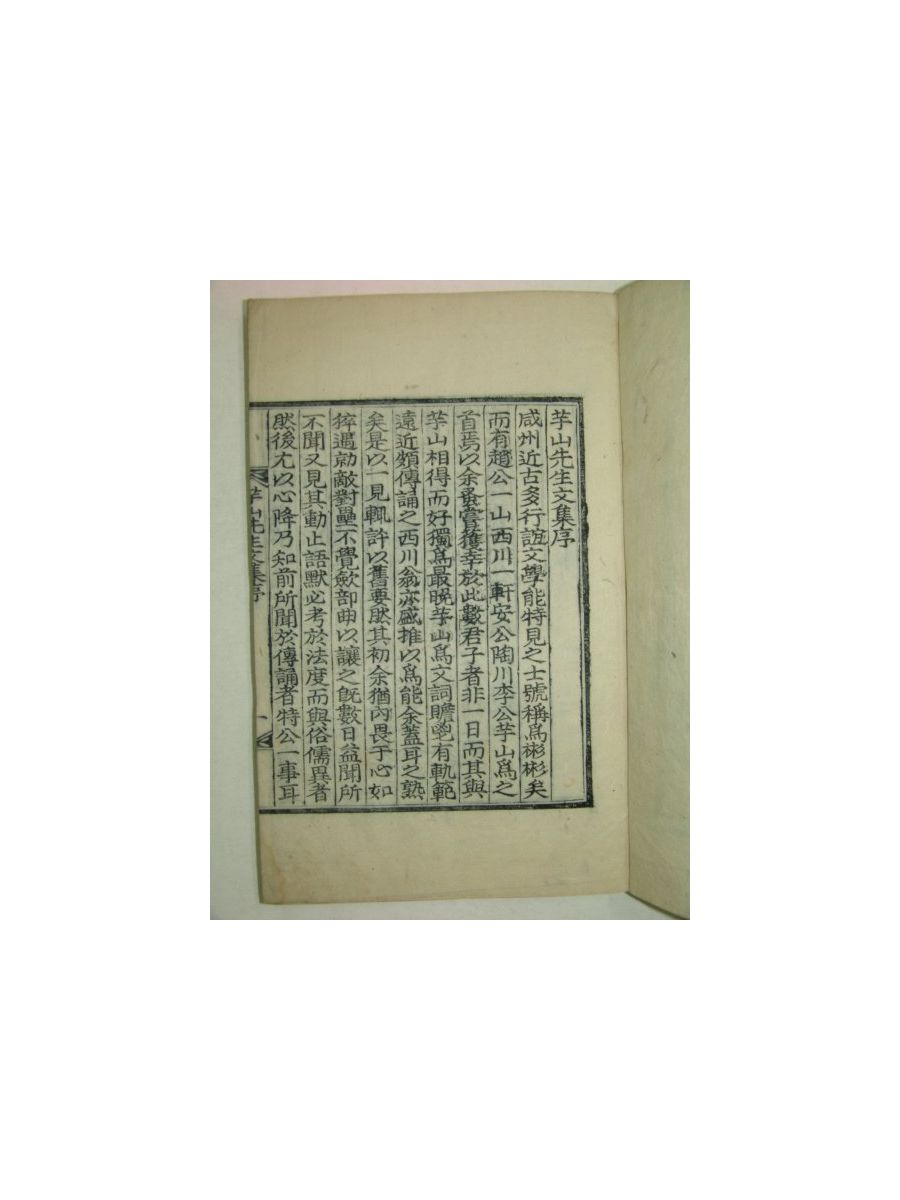 芋山先生文集序
咸州近古多行誼文學能特見之士號稱爲彬彬矣
而有趙公一山西川一軒安公陶川李公芋山爲之
首焉以余蚤嘗獲幸於此數君子者非一日而其與
芋山相得而好獨爲最晩芋山爲文詞贍鬯有軌範
遠近頗傳誦之西川翁亦盛推以爲能余蓋耳之熟
矣是以一見輒許以舊要然其初余猶內畏于心如
猝遇勍敵對壘不覺斂部曲以讓之旣數日益聞所
不聞又見其動止語默必考於法度而與俗儒異者
然後尤以心降乃知前所聞於傳誦者特公一事耳
芋山先生文集序
一